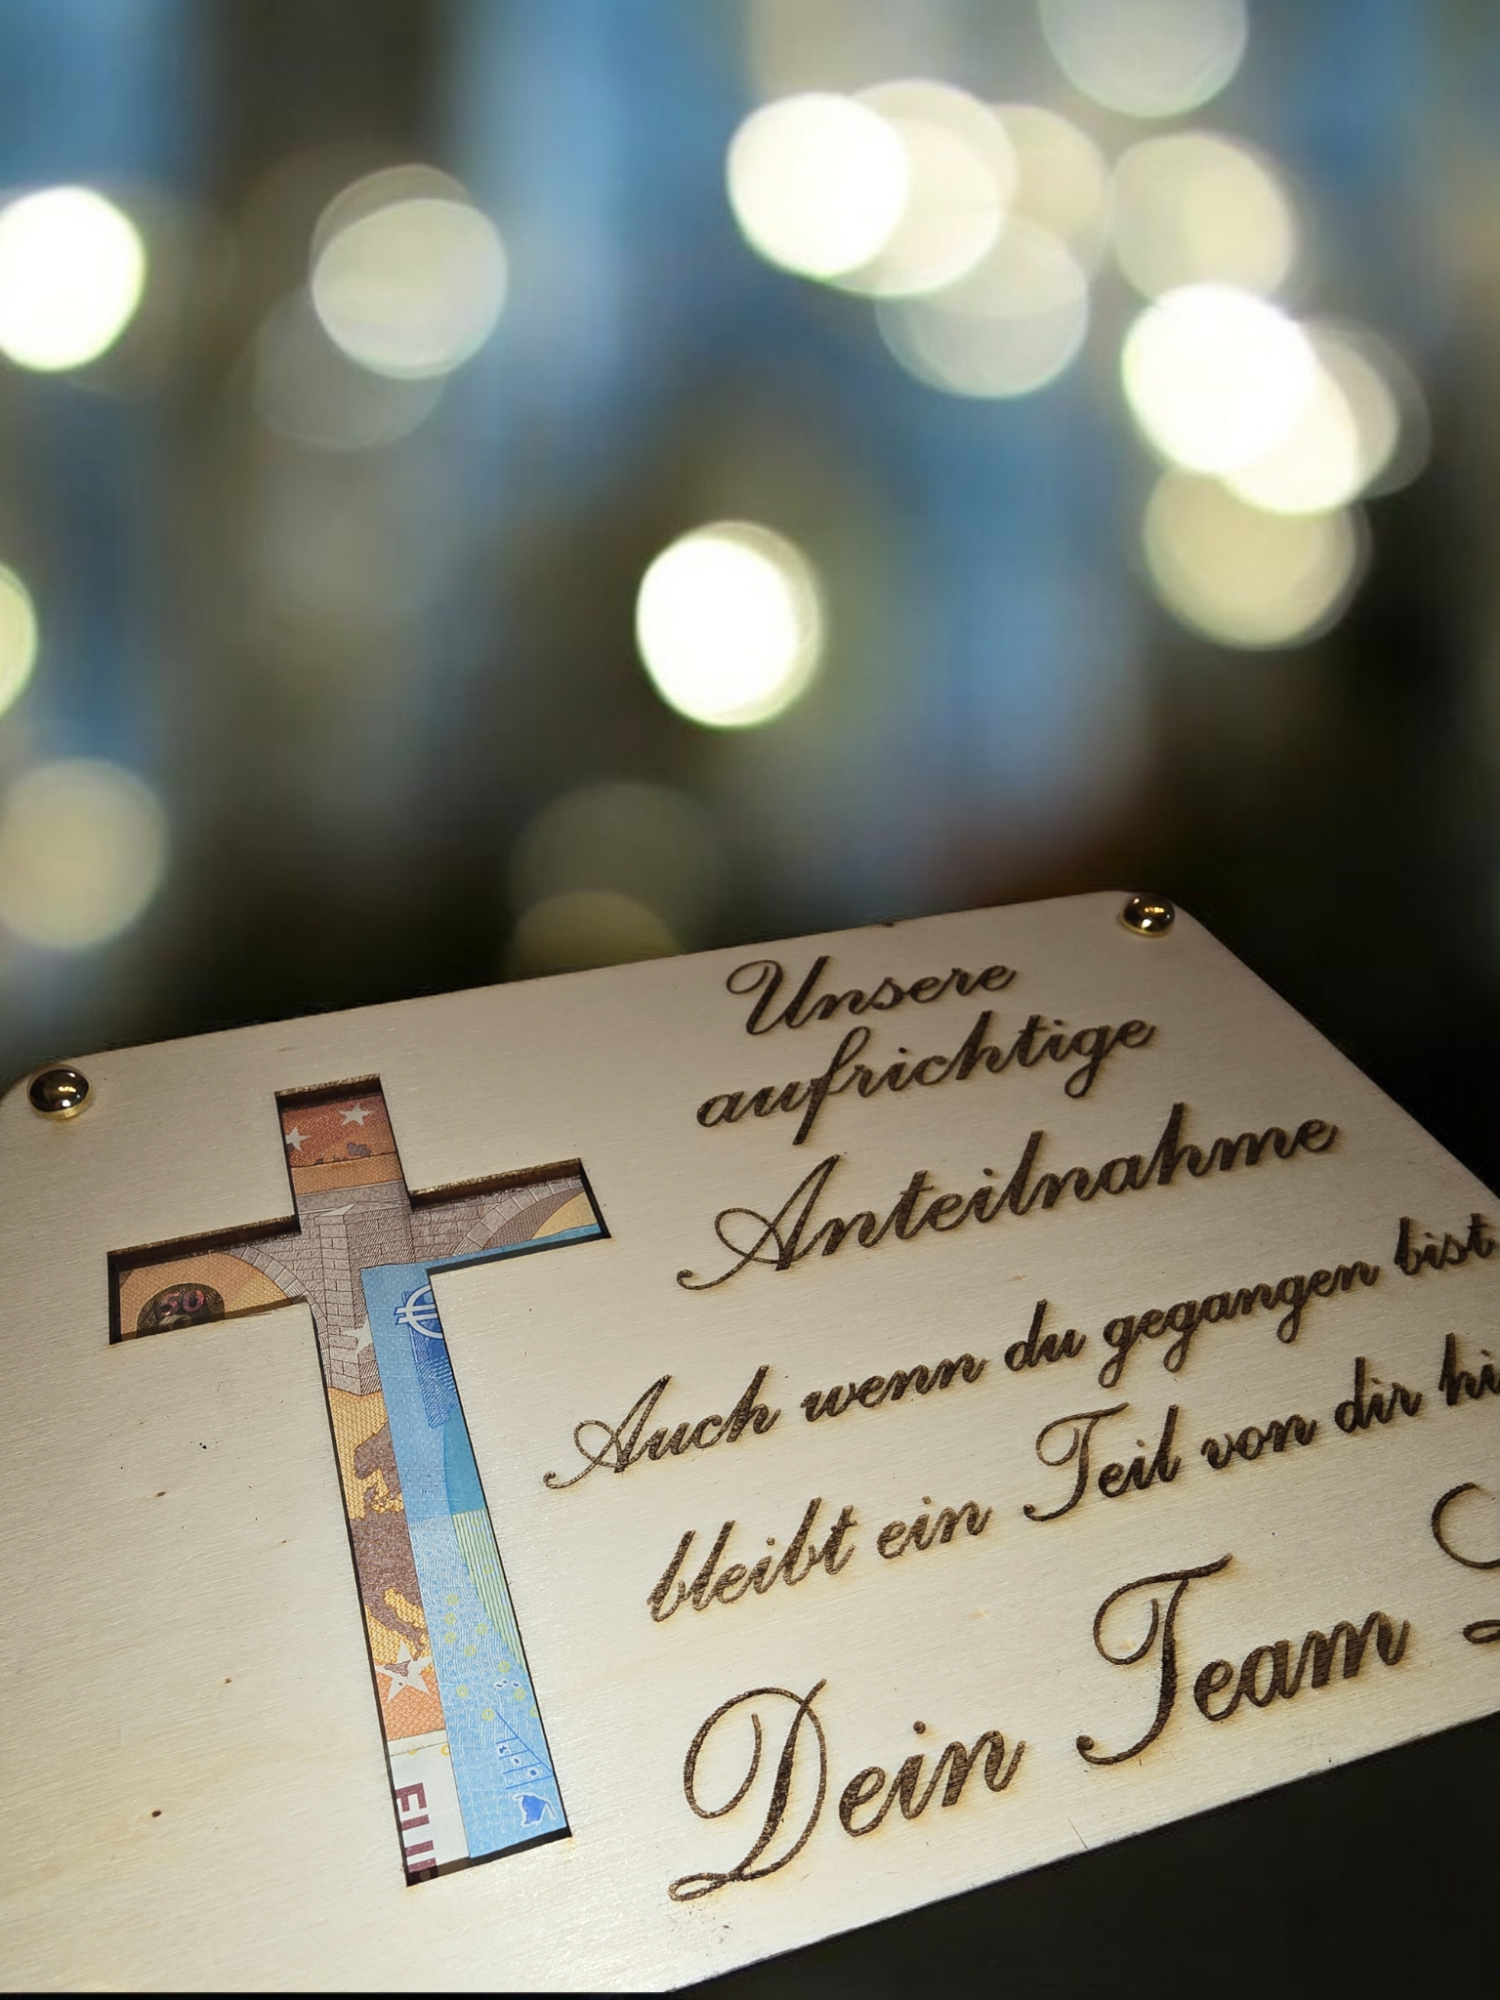 Unsere
aufrichtige
Anteilnahme
Auch wenn du gegangen bist
bleibt ein Teil von dir
Dein Team
50
€